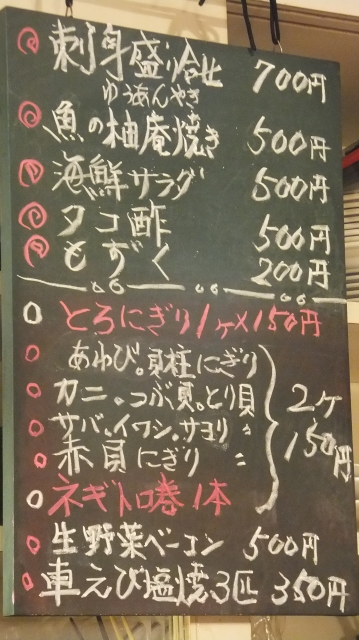 刺身盛り合せ 700円
ゆうあんやき
魚の柚庵焼き 500円
海鮮サラダ 500円
タコ酢 500円
もずく 200円
とろにぎり1ヶ×150円
あわび。貝柱にぎり
カニ。つぶ貝。とり貝
サバ。イワシ。サヨリ 〃
2ヶ150円
赤貝にぎり 〃
ネギトロ巻1本
生野菜ベーコン 500円
車えび塩焼3匹 350円